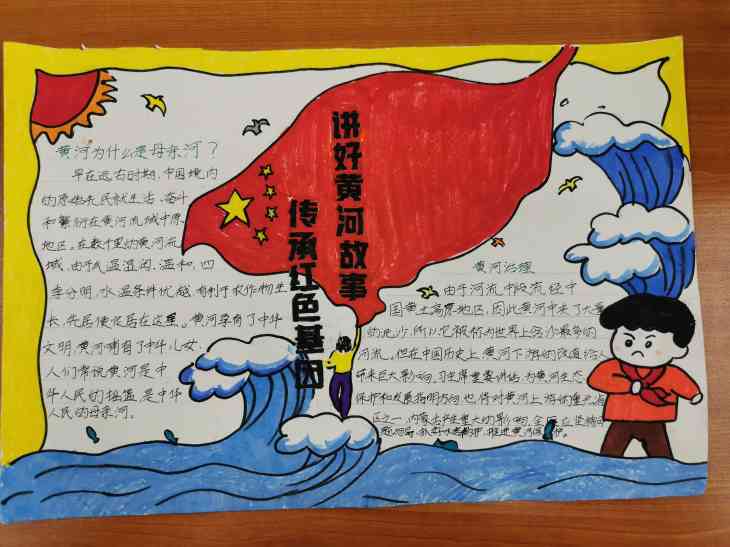 讲好黄河故事
传承红色基因
黄河为什么是母亲河？
早在远古时期,中国境内
的原始先民就生活、奋斗
和繁衍在黄河流域中原
地区。在数千里的黄河流
域,由于气温温润、温和,四
季分明,水温条件优越,有利于农作物生
长,先居便定居在这里。黄河孕育了中华
文明,黄河哺育了中华儿女,
人们常说黄河是中
华人民的摇篮,是中华
人民的母亲河。
黄河治理
由于河流中段流经中
国黄土高原地区,因此黄河中夹了大量
的泥沙,所以它被称为世界上含沙最多的
河流。但在中国历史上,黄河下游的改道给人
带来巨大影响,习主席重要讲话,为黄河生态
保护和发展指明方向也 黄河上游
区之一,内蒙古 重大的影响,
推进黄河